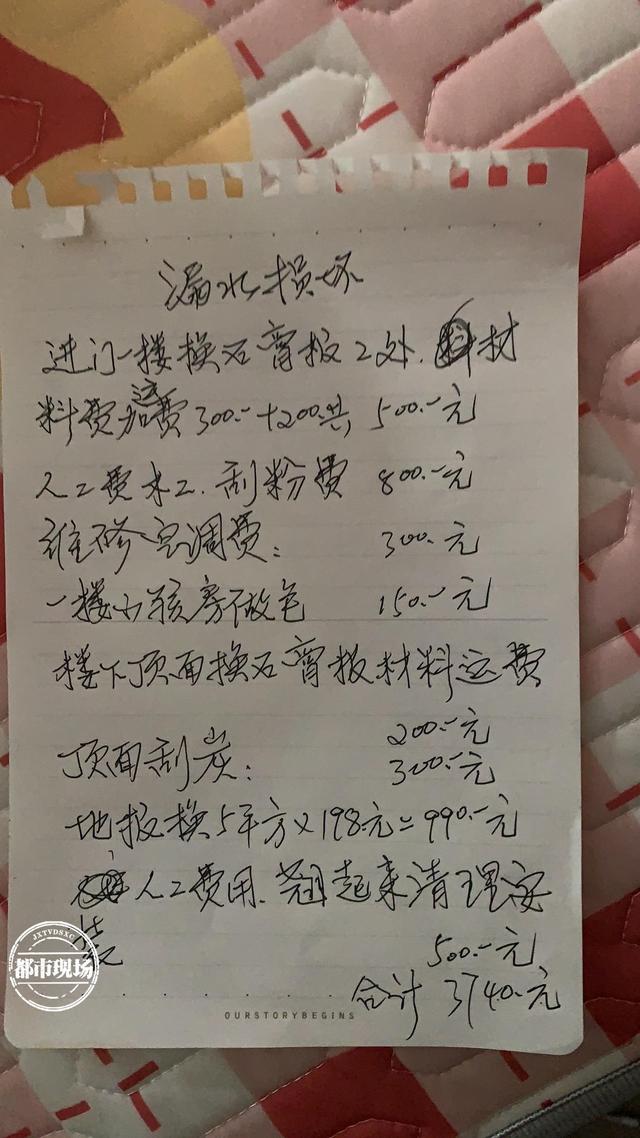 漏水损坏
进门一楼换石膏板2处.材
料费运费300.-+200共,500.-元
人工费木工.刮粉费 800.-元
维修空调费: 300.-元
一楼小孩房不做色 150.-元
楼下顶面换石膏板材料运费
200.-元
顶面刮炭: 300.-元
地板换5平方×198元=990.-元
人工费用.翘起来清理安
装 500.-元
合计 3740.-元
OURSTORYBEGINS
JXTVDSXC
都市现场